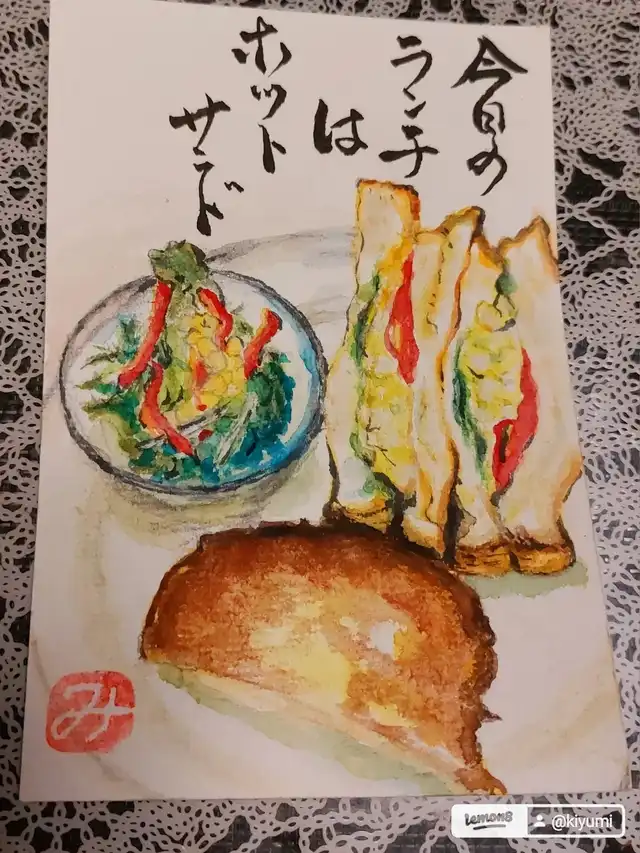 今日の
ランチ
は
ホット
サンド
み
lemon8
@kiyumi